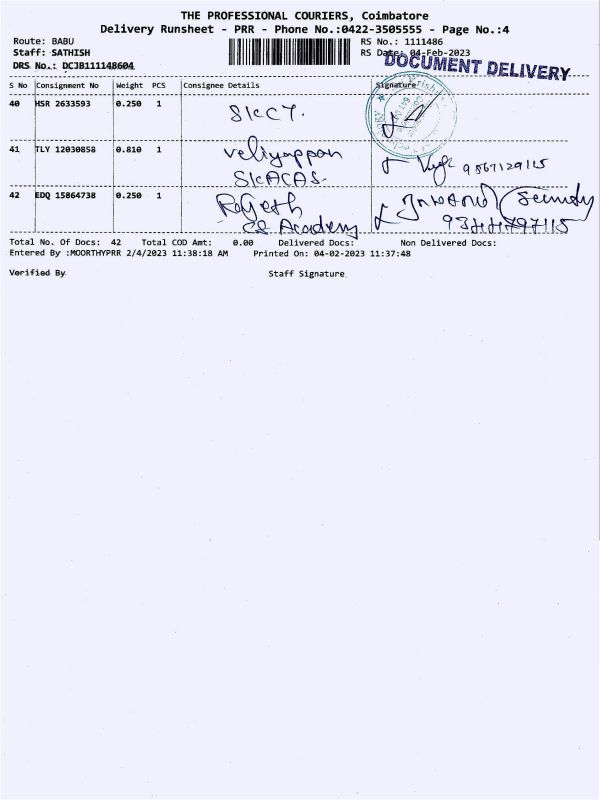 THE PROFESSIONAL COURIERS, Coimbatore
Delivery Runsheet - PRR - Phone No.:0422-3505555 - Page No.:4
Route: BABU
RS No.: 1111486
Staff: SATHISH
RS Date: 04-Feb-2023
DRS No.: DCJB111148604
DOCUMENT DELIVERY
S No Consignment No Weight PCS Consignee Details Signature
40 HSR 2633593 0.250 1 SKCT.
41 TLY 12030858 0.810 1 Veliyappan
SKACAS-
42 EDQ 15864738 0.250 1 Rajesh Security
CS Academy
Total No. Of Docs: 42 Total COD Amt: 0.00 Delivered Docs: Non Delivered Docs:
Entered By :MOORTHYPRR 2/4/2023 11:38:18 AM Printed On: 04-02-2023 11:37:48
Verified By Staff Signature